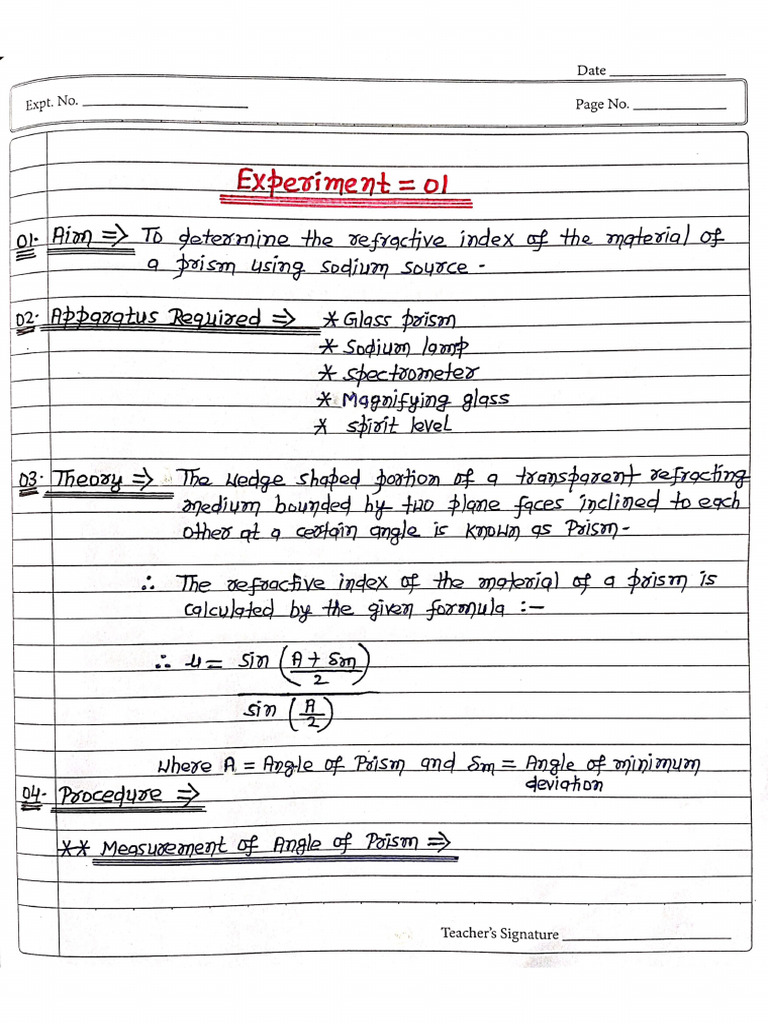 Date
Expt. No.
Page No.
Experiment = 01
01. Aim ⇒ To determine the refractive index of the material of
a prism using sodium source -
02. Apparatus Required ⇒ * Glass prism
* Sodium lamp
* Spectrometer
* Magnifying glass
* Spirit level
03. Theory ⇒ The wedge shaped portion of a transparent refracting
medium bounded by two plane faces inclined to each
other at a certain angle is known as Prism-
∴ The refractive index of the material of a prism is
calculated by the given formula :-
∴ μ = sin (A + δm / 2)
sin (A / 2)
where A = Angle of Prism and δm = Angle of minimum
deviation
04. Procedure ⇒
** Measurement of Angle of Prism ⇒
Teacher's Signature